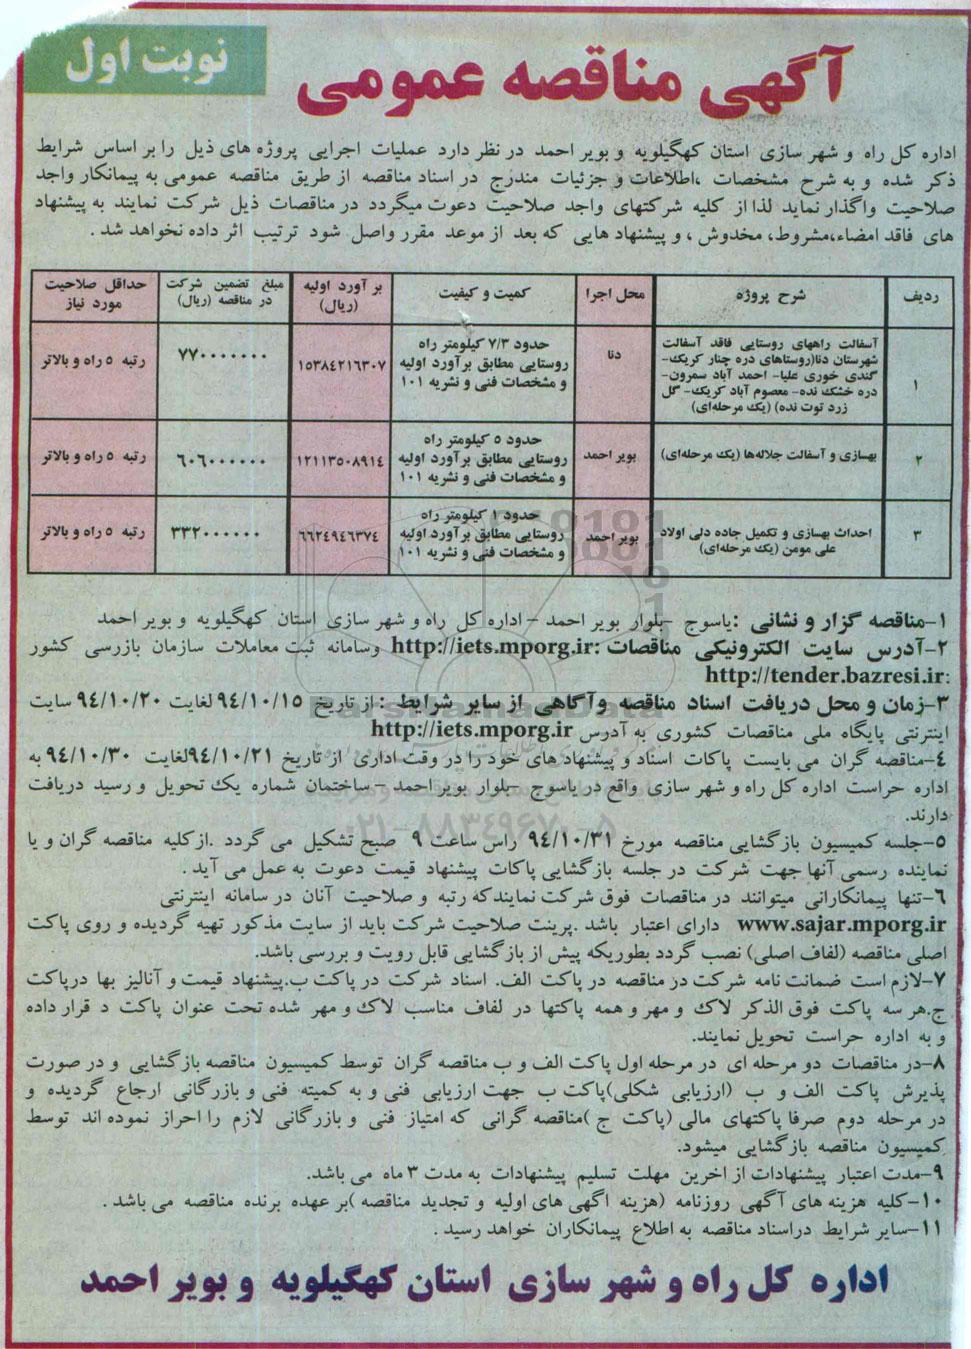 نوبت اول
آگهی مناقصه عمومی
اداره کل راه و شهر سازی استان کهگیلویه و بویر احمد در نظر دارد عملیات اجرایی پروژه های ذیل را بر اساس شرایط
ذکر شده و به شرح مشخصات ،اطلاعات و جزئیات مندرج در اسناد مناقصه از طریق مناقصه عمومی به پیمانکار واجد
صلاحیت واگذار نماید لذا از کلیه شرکتهای واجد صلاحیت دعوت میگردد در مناقصات ذیل شرکت نمایند به پیشنهاد
های فاقد امضاء،مشروط، مخدوش ، و پیشنهاد هایی که بعد از موعد مقرر واصل شود ترتیب اثر داده نخواهد شد .
ردیف
شرح پروژه
محل اجرا
کمیت و کیفیت
بر آورد اولیه
(ریال)
مبلغ تضمین شرکت
در مناقصه (ریال)
حداقل صلاحیت
مورد نیاز
۱
آسفالت راههای روستایی فاقد آسفالت
شهرستان دنا(روستاهای دره چنار کریک-
گندی خوری علیا- احمد آباد سمرون-
دره خشک نده- معصوم آباد کریک- گل
زرد توت نده) (یک مرحله‌ای)
دنا
حدود ۷/۳ کیلومتر راه
روستایی مطابق برآورد اولیه
و مشخصات فنی و نشریه ۱۰۱
۱۵۳۸٤۲۱٦۳۰۷
۷۷۰۰۰۰۰۰۰
رتبه ۵ راه و بالاتر
۲
بهسازی و آسفالت جلاله‌ها (یک مرحله‌ای)
بویر احمد
حدود ۵ کیلومتر راه
روستایی مطابق برآورد اولیه
و مشخصات فنی و نشریه ۱۰۱
۱۲۱۱۳۵۰۸۹۱٤
٦۰٦۰۰۰۰۰۰
رتبه ۵ راه و بالاتر
۳
احداث بهسازی و تکمیل جاده دلی اولاد
علی مومن (یک مرحله‌ای)
بویر احمد
حدود ۱ کیلومتر راه
روستایی مطابق برآورد اولیه
و مشخصات فنی و نشریه ۱۰۱
٦٦۲٤۹٤٦۳۷٤
۳۳۲۰۰۰۰۰۰
رتبه ۵ راه و بالاتر
۱-مناقصه گزار و نشانی :یاسوج -بلوار بویر احمد - اداره کل راه و شهر سازی استان کهگیلویه و بویر احمد
۲-آدرس سایت الکترونیکی مناقصات :http://iets.mporg.ir وسامانه ثبت معاملات سازمان بازرسی کشور
:http://tender.bazresi.ir
۳-زمان و محل دریافت اسناد مناقصه وآگاهی از سایر شرایط : از تاریخ ۹٤/۱۰/۱۵ لغایت ۹٤/۱۰/۲۰ سایت
اینترنتی پایگاه ملی مناقصات کشوری به آدرس http://iets.mporg.ir
٤-مناقصه گران می بایست پاکات اسناد و پیشنهاد های خود را در وقت اداری از تاریخ ۹٤/۱۰/۲۱لغایت ۹٤/۱۰/۳۰ به
اداره حراست اداره کل راه و شهر سازی واقع در یاسوج -بلوار بویر احمد - ساختمان شماره یک تحویل و رسید دریافت
دارند.
۵-جلسه کمیسیون بازگشایی مناقصه مورخ ۹٤/۱۰/۳۱ راس ساعت ۹ صبح تشکیل می گردد .ازکلیه مناقصه گران و یا
نماینده رسمی آنها جهت شرکت در جلسه بازگشایی پاکات پیشنهاد قیمت دعوت به عمل می آید .
٦-تنها پیمانکارانی میتوانند در مناقصات فوق شرکت نمایندکه رتبه و صلاحیت آنان در سامانه اینترنتی
www.sajar.mporg.ir دارای اعتبار باشد .پرینت صلاحیت شرکت باید از سایت مذکور تهیه گردیده و روی پاکت
اصلی مناقصه (لفاف اصلی) نصب گردد بطوریکه پیش از بازگشایی قابل رویت و بررسی باشد.
۷-لازم است ضمانت نامه شرکت در مناقصه در پاکت الف. اسناد شرکت در پاکت ب.پیشنهاد قیمت و آنالیز بها درپاکت
ج.هر سه پاکت فوق الذکر لاک و مهر و همه پاکتها در لفاف مناسب لاک و مهر شده تحت عنوان پاکت د قرار داده
و به اداره حراست تحویل نمایند.
۸-در مناقصات دو مرحله ای در مرحله اول پاکت الف و ب مناقصه گران توسط کمیسیون مناقصه بازگشایی و در صورت
پذیرش پاکت الف و ب (ارزیابی شکلی)پاکت ب جهت ارزیابی فنی و به کمیته فنی و بازرگانی ارجاع گردیده و
در مرحله دوم صرفا پاکتهای مالی (پاکت ج )مناقصه گرانی که امتیاز فنی و بازرگانی لازم را احراز نموده اند توسط
کمیسیون مناقصه بازگشایی میشود.
۹-مدت اعتبار پیشنهادات از اخرین مهلت تسلیم پیشنهادات به مدت ۳ ماه می باشد.
۱۰-کلیه هزینه های آگهی روزنامه (هزینه اگهی های اولیه و تجدید مناقصه )بر عهده برنده مناقصه می باشد .
۱۱-سایر شرایط دراسناد مناقصه به اطلاع پیمانکاران خواهد رسید .
اداره کل راه و شهر سازی استان کهگیلویه و بویر احمد
۰۲۱-۸۸۳٤۹٦۷۰-۵